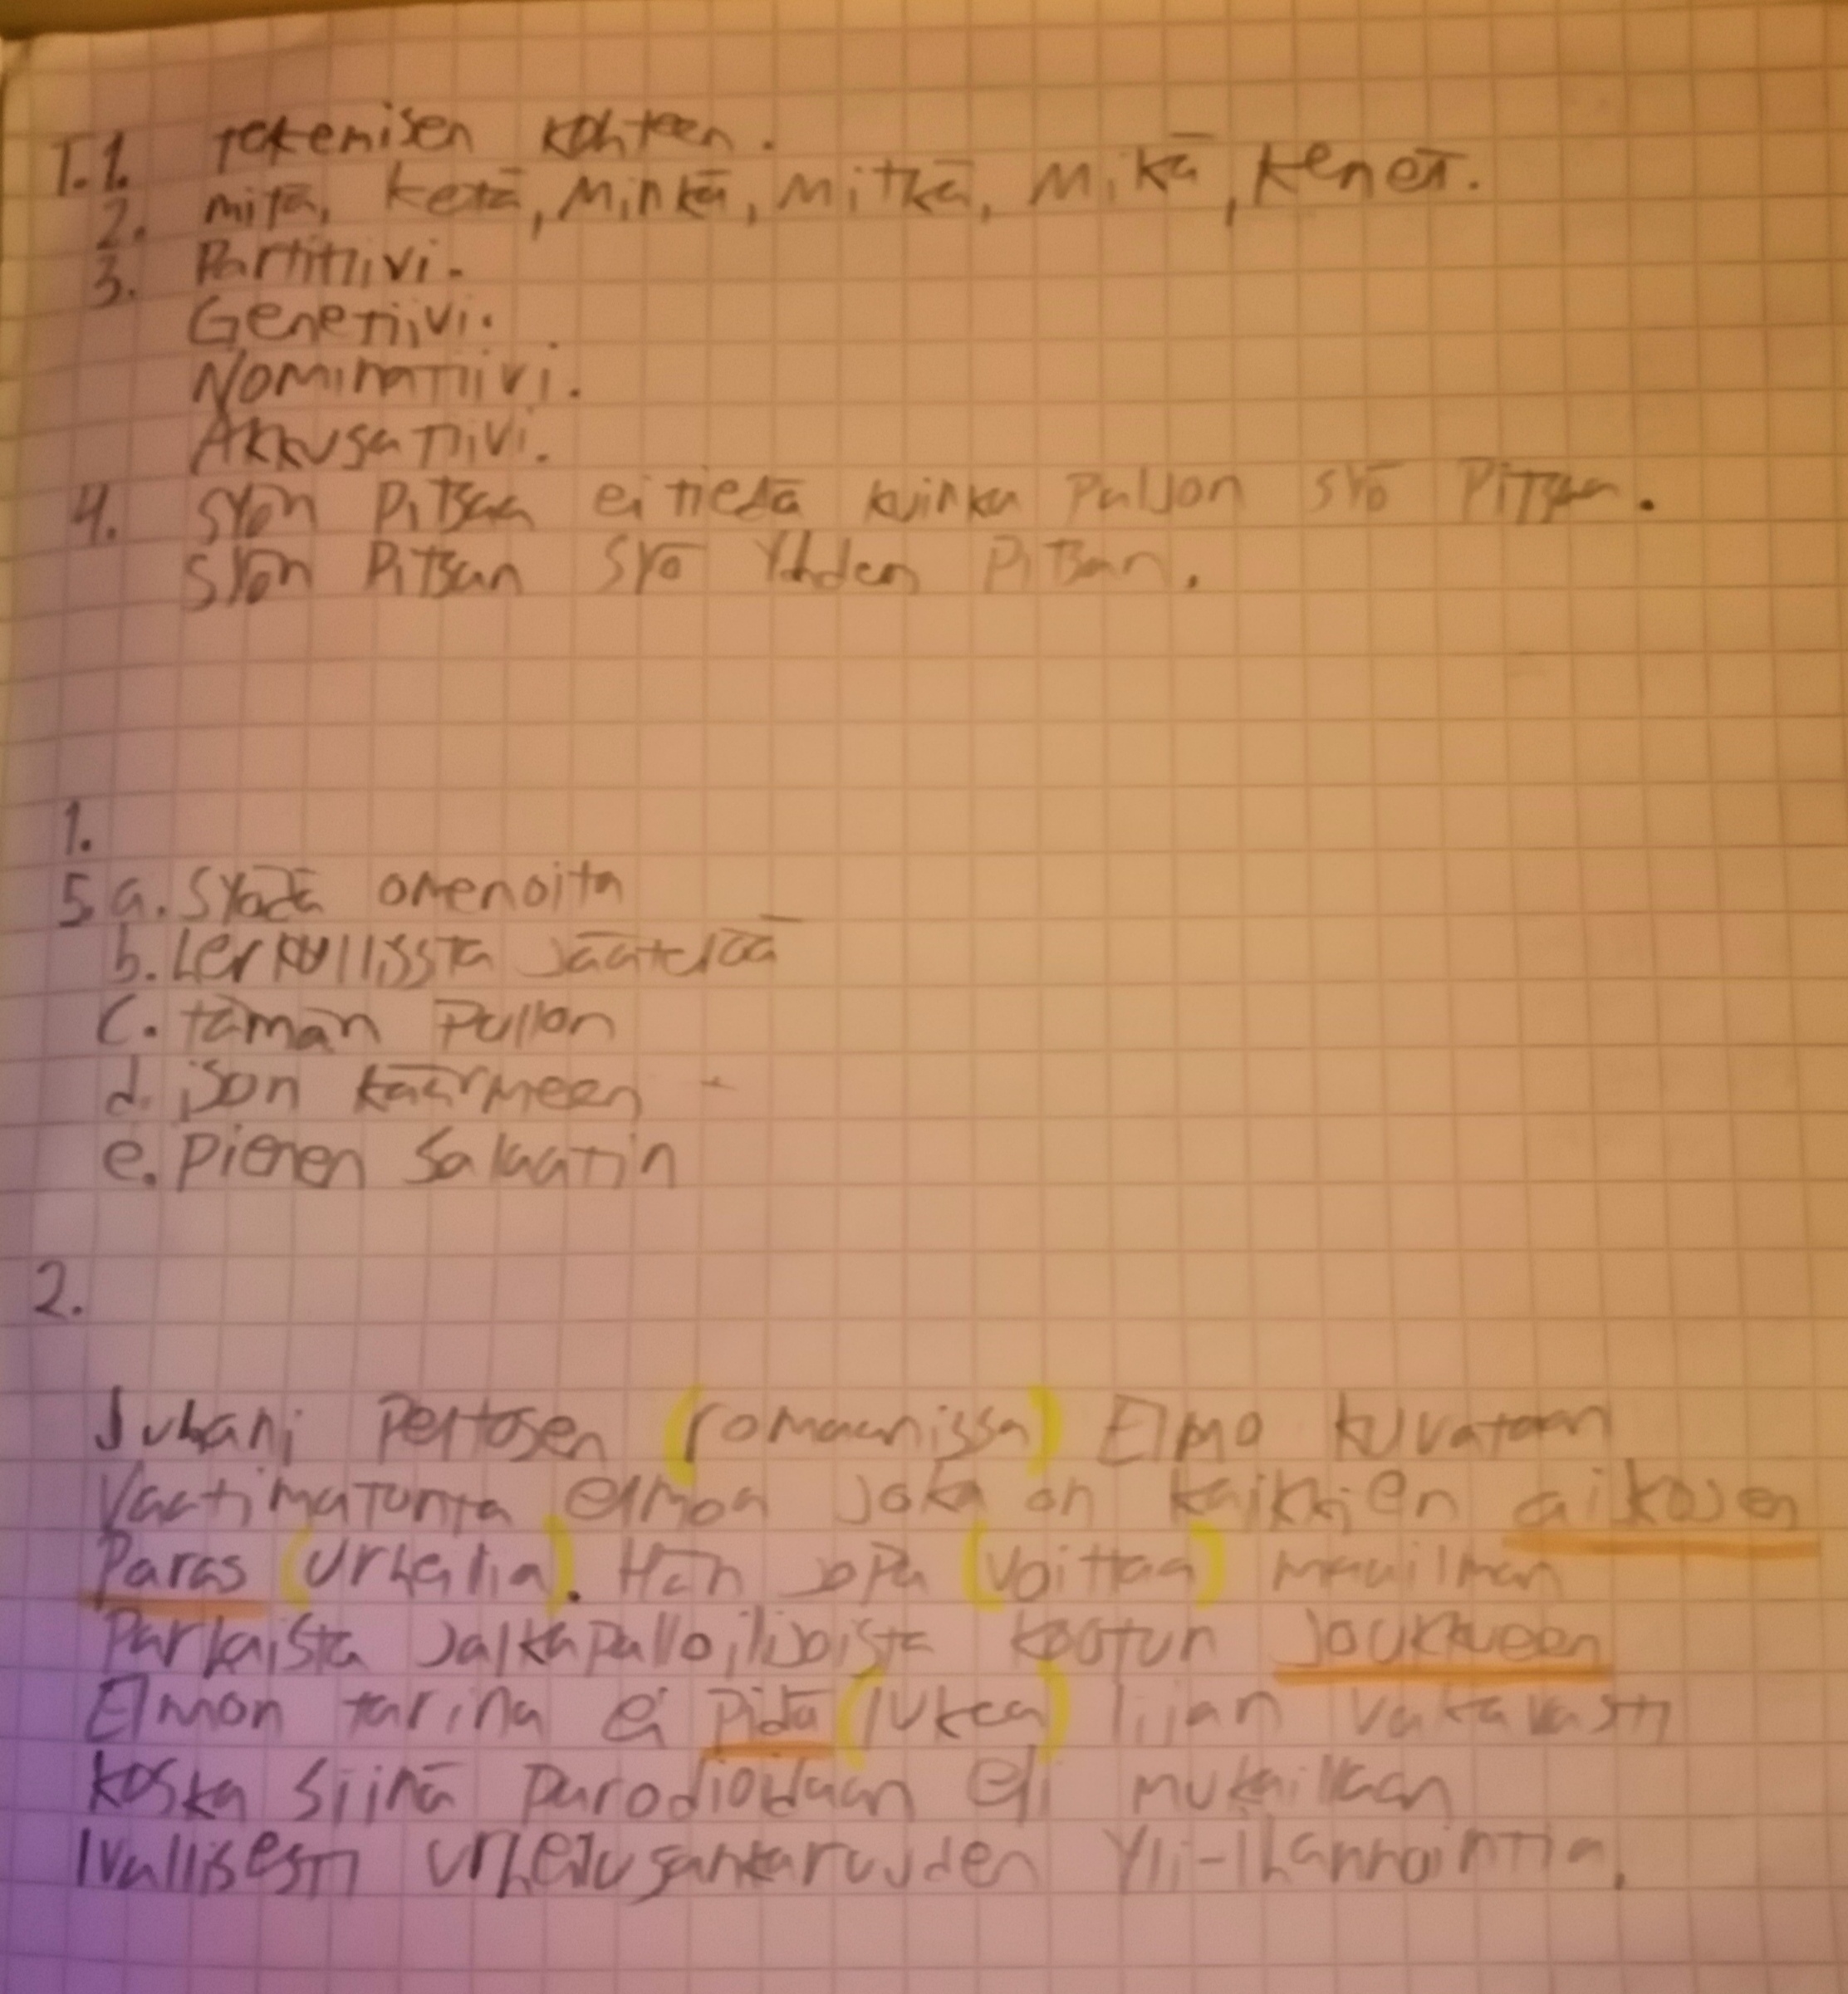 T.1. Tekemisen kohteen.
2. mitä, ketä, Minkä, Mitkä, Mikä, kenet.
3. Partitiivi.
Genetiivi.
Nominatiivi.
Akkusatiivi.
4. syön Pitsaa ei tiedä kuinka Paljon syö Pitsaa.
syön Pitsan syö Yhden Pitsan.
1.
5. a. Syödä omenoita
b. Lerkullissta Jäätelöä
C. tämän Pullon
d. ison käärmeen
e. Pienen Salaatin
2.
Juhani Peltosen (romaanissa) Elmo kuvataan
Vaatimatonta elmoa joka on kaikkien aikojen
Paras (urheilia). Hän jopa (voittaa) maailman
Parhaista Jalkapalloilijoista kootun Joukkueen
Elmon tarina ei Pidä (lukea) liian vakavasti
koska siinä Parodioidaan eli mukaillaan
Ivallisesti urheilusankaruuden Yli-ihannointia.